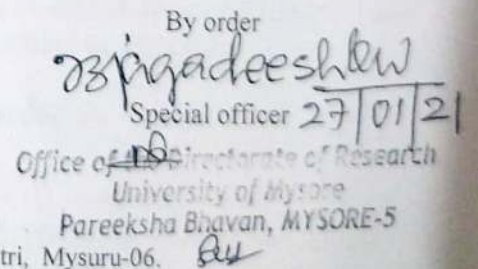 By order
Special officer 27/01/21
Office of Directorate of Research
University of Mysore
Pareeksha Bhavan, MYSORE-5
tri, Mysuru-06.